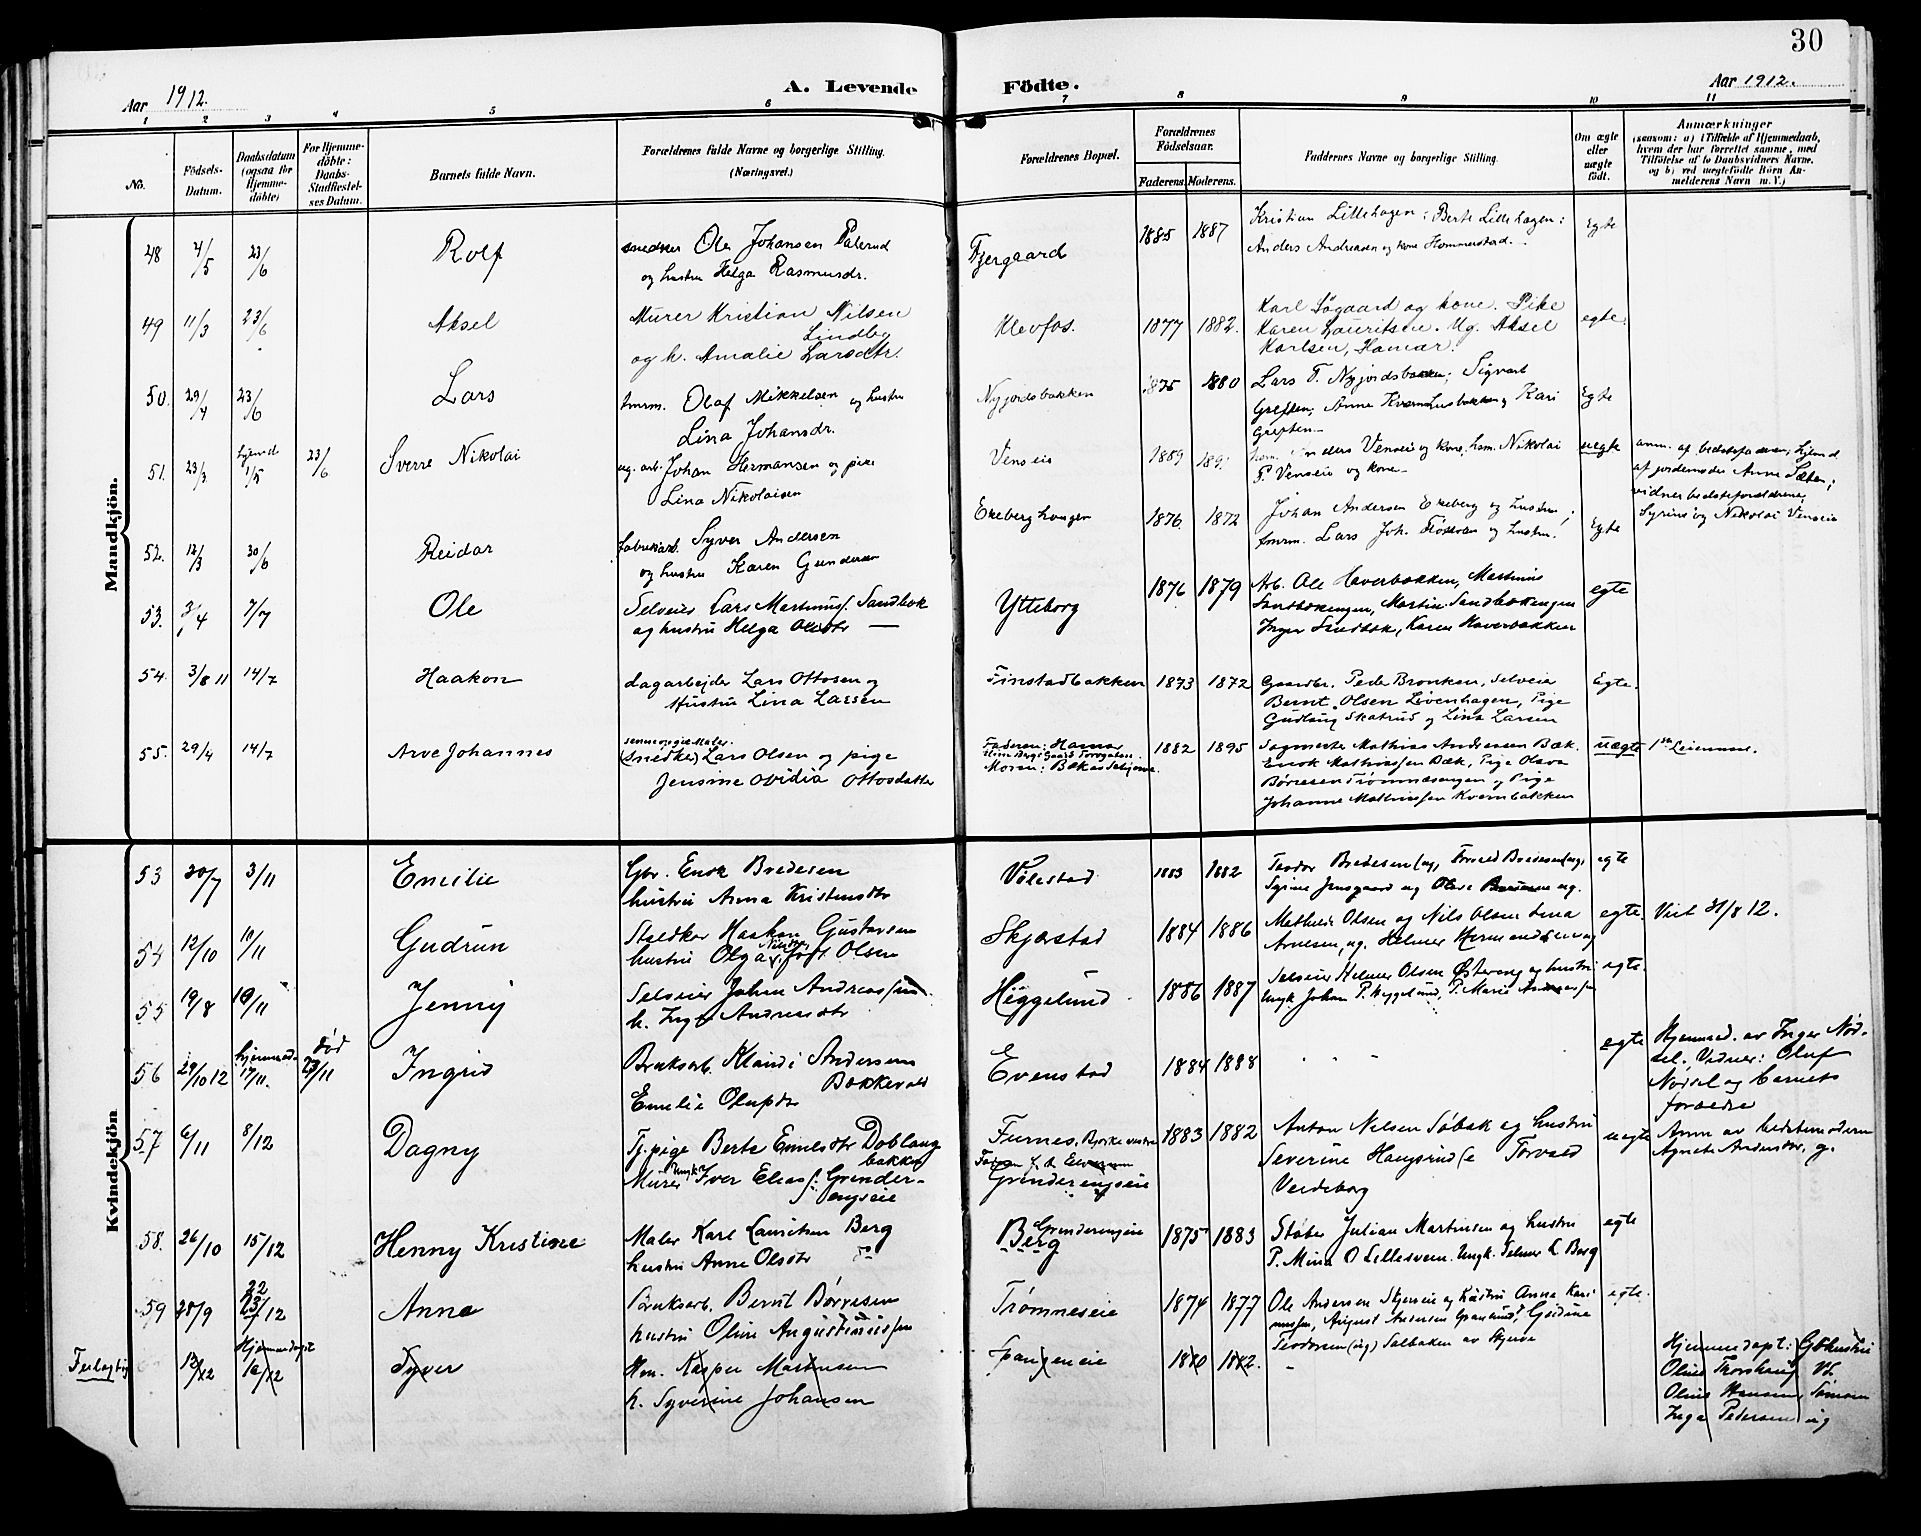 30
Aar 1912.
A. Levende
Födte.
Aar 1912.
1 2 3 4 5 6 7 8 9 10 11
No.
Födsels-
Datum.
Daabsdatum
(ogsaa for
Hjemme-
döbte)
For Hjemme-
döbte:
Daabs-
Stadfæstel-
ses Datum.
Barnets fulde Navn.
Forældrenes fulde Navne og borgerlige Stilling.
(Næringsvei.)
Forældrenes Bopæl.
Forældrenes
Födselsaar.
Faderens. Moderens.
Faddernes Navne og borgerlige Stilling.
Om ægte
eller
uægte
født.
Anmærkninger
(saasom: a) i Tilfælde af Hjemmedaab,
hvem der har forrettet samme, med
Tilföielse af to Daabsvidners Navne,
og b) ved uægtefödte Börn An-
melderens Navn m. V.)
Mandkjön.
48 4/5 23/6 Rolf snedker Ole Johansen Palerud
og hustru Helga Rasmusdr.
Fjergaard 1885 1887 Kristian Lillehagen; Berte Lillehagen;
Anders Andreasen og kone Hommerstad. Egte
49 11/3 23/6 Aksel Murer Kristian Nilsen
Lindby
og h. Amalie Larsdtr.
Klevfos. 1877 1882. Karl Søgaard og kone. Pike
Karen Lauritsen. Ug. Aksel
Karlsen, Hamar. egte.
50. 29/4 23/6 Lars tmrm. Olaf Mikkelsen og hustru
Lina Johansdr.
Nyjordsbakken 1875 1880 Lars T. Nyjordsbakken; Sigvart
Greften; Anne Kvernhusbakken og Kari
Greften Egte
51. 23/3 hjemd 1/5 23/6 Sverre Nikolai ug. arb. Johan Hermansen og pike
Lina Nikolaisen
Venseie 1889 Anders Venseie og kone, hsm. Nikolai
P. Venseie og kone uegte anm. af bedstefaderen; hjemd
af jordemoder Anne Sæter;
vidner bedsteforældrene,
Syrine og Nikolai Venseie
52. 12/3 30/6 Reidar fabrikarb. Syver Andersen
og hustru Karen Gundersen
Ekeberghaugen 1876. 1872 Johan Andersen Ekeberg og hustru;
tmrm. Lars Joh. og hustru. Egte
53. 3/4 7/7 Ole Selveier Lars Martinus. Sandbæk
og hustru Helga Olesdtr —
Ytteborg 1876 1879 Arb. Ole Haverbakken, Martinus
Sandbækengen, Martin Sandbakengen
Inger Sandbæk, Karen Haverbakken egte
54. 3/8 11 14/7 Haakon dagarbejder Lars Ottosen og
Hustru Lina Larsen
Finstadbakken 1873 1872 Gaardbr. Peder Bronken, selveier
Bernt Olsen Løvenhagen, Pige
Gudlaug Skatrud og Lina Larsen Egte.
55. 29/4 14/7 Arve Johannes
(snedker) Lars Olsen og pige
Jensine Ovidia Ottosdatter
Faderen: Hamar
Moren: Bækas 1882 1895 Sagmester Mathias Andreassen Bæk.
Enok Mathiassen Bæk, Pige Olava
Børresen Trømnæsengen og Pige
Johanne Mathiassen Kvernbakken uægte 1ste Leiermaal.
Kvindekjön
53 30/7 3/11 Emilie Gbr. Enok Bredesen
hustru Anna Kristensdtr
Vølestad 1883 1882 Teodor Bredesen (ug, Torvald Bredesen (ug,
Syrine Jensgaard og ug. egte
54 12/10 10/11 Gudrun Staldkar Haakon Gustavsen
hustru Olga Nielsen f. Olsen
Skjærstad 1884 1886 Mathilde Olsen og Nils Olsen Lina
Arnesen, ug. Helmer Hermandsen ug egte. Viet 31/8 12.
55 19/8 10/11 Jenny Selveier Johan Andreassen
h. Inga Andreasdtr
Heggelund 1886 1887 Selveier Helmer Olsen Østvang og hustru
Ungk Johan P. Heggelund, P. Marie Andreassen egte.
56 29/10 12 hjemmed. 17/11 død 23/11 Ingrid Bruksarb. Klaudi Andersen
Bakkevold
Emelie Olufsdtr
Evenstad 1884 1888 egte Hjemmed. av Inger Nød-
sel. Vidner: Oluf
Nødsel og barnets
forældre
57 6/11 8/12 Dagny Tj. pige Berte Emilsdtr Doblaug
bakken
Murer Ungk. Iver Eliass. Grinder-
engseie
Furnes, Bjørke vestre
Faren f. d. Elverum
Grinderengseie 1883 1882 Anton Nilsen Søbak og hustru
Severine Haugsrud (e Torvald
Veideborg uegte Anm av bedstemoderen
Agnete Andersdtr. g.
58. 26/10 15/12 Henny Kristine Maler Karl Lauritsen Berg
hustru Anne Olsdtr do
Grinderengeie
Berg 1875 1883 Støber Julian Martinsen og hustru
P. Mina O Lillesveen. Ungk. Selmer L Berg egte
59 28/9 22/12 Anna Bruksarb. Bernt Børresen
hustru Oline Augustinussen
Trømneseie 1874 1877 Ole Andersen Skjerseie og hustru Anna Kari-
nussen, August Andersen Granlund, Gudine
Teodorsen (ug) Solbaken av Stjerne egte.
Feilagtig 12/12 Hjemmedøpt 16/12 Syver Hm. Kasper Martinsen
h. Syverine Johansen
Spangeneie 1880 1882. Hjemmedøpt: Gbr hustru
Oline Thorshaug Vt.
Oline Hansen, Simen
Inga Pedersen ug